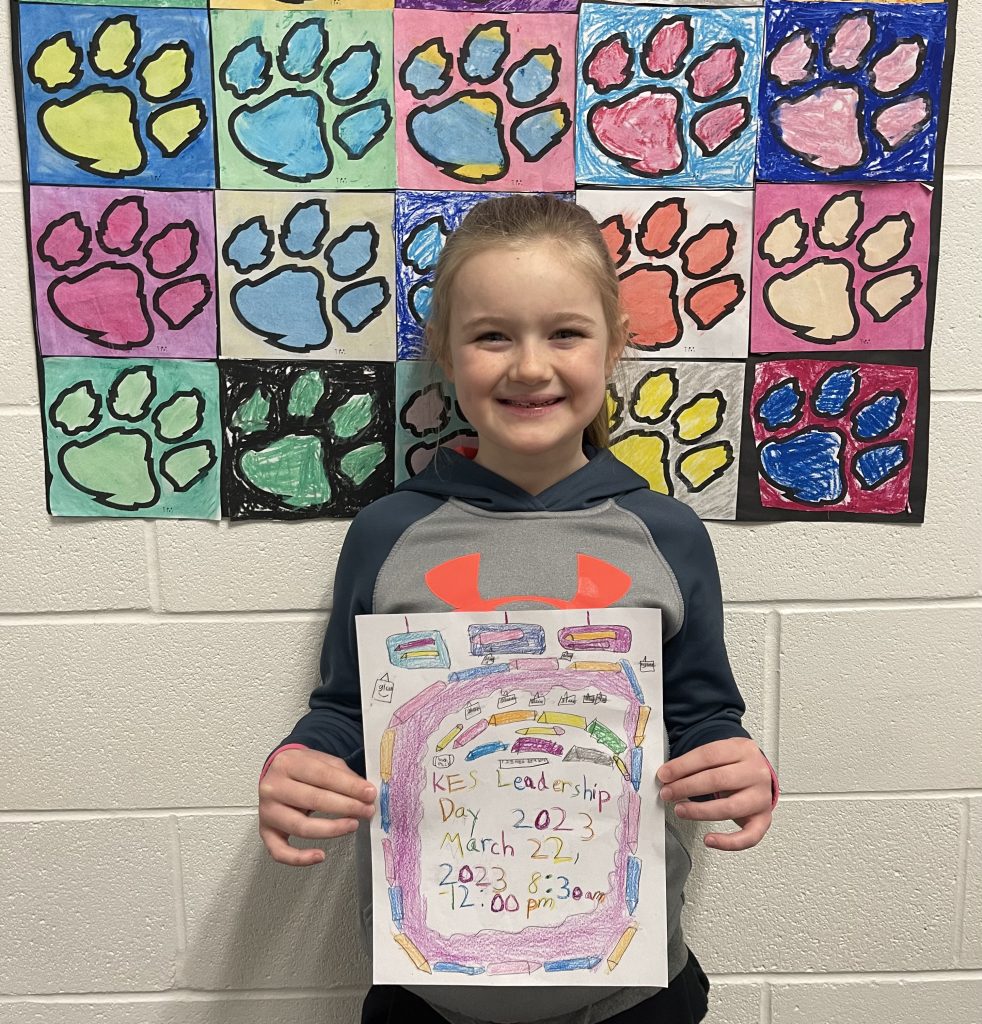 glue
KES Leadership
Day 2023
March 22,
2023 8:30am
-12:00 pm